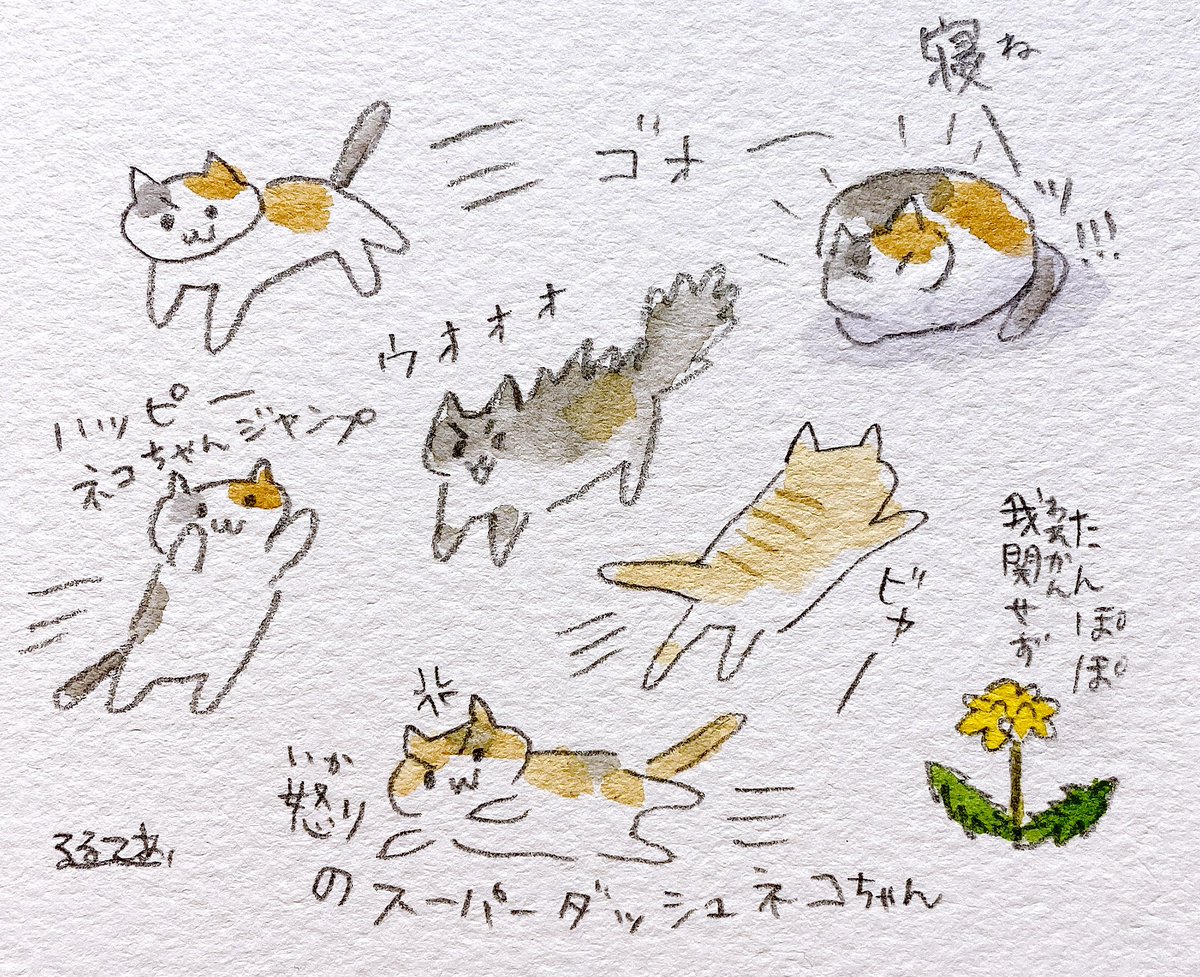 寝ね
ゴオーッ!!!
ウオオオ
ハッピー
ネコちゃんジャンプ
ビカー
たんぽぽ
我関せず
われかん
いか
怒り
のスーパーダッシュネコちゃん
るるてあ